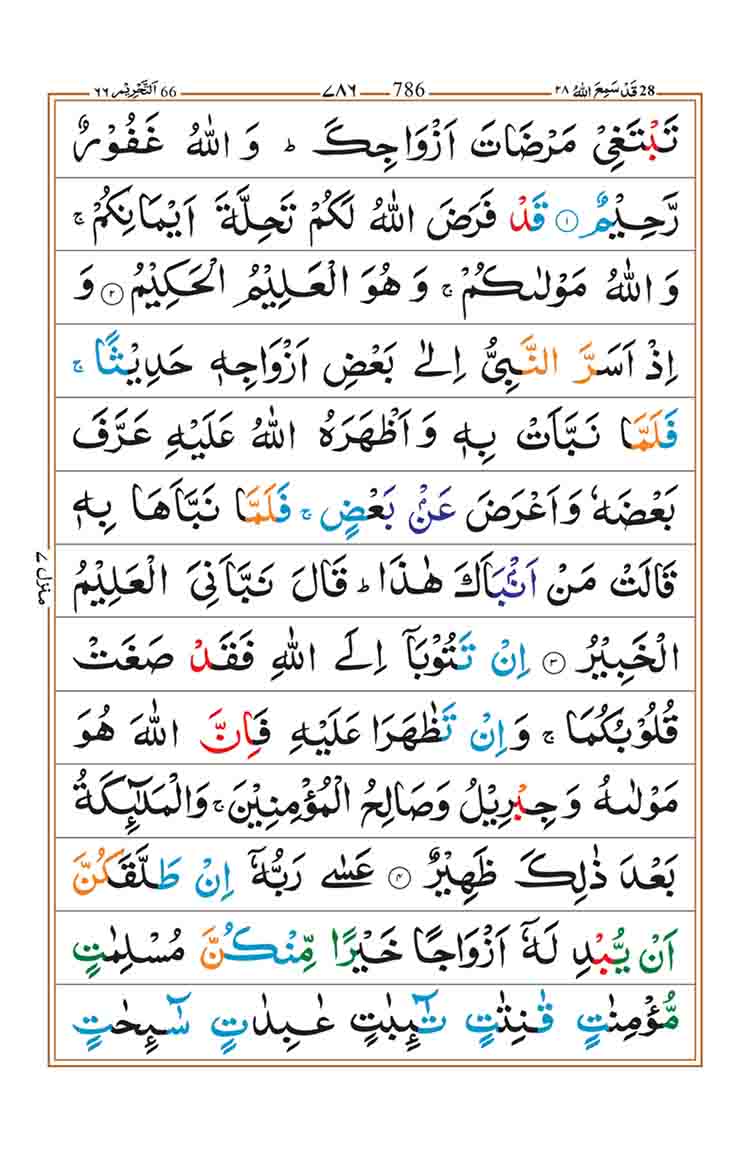 28 قَدْ سَمِعَ اللّٰهُ ٢٨ 786 ٧٨٦ 66 اَلتَّحْرِيْم ٦٦
تَبْتَغِىْ مَرْضَاتَ اَزْوَاجِكَ ؕ وَ اللّٰهُ غَفُوْرٌ
رَّحِيْمٌ ۝١ قَدْ فَرَضَ اللّٰهُ لَكُمْ تَحِلَّةَ اَيْمَانِكُمْ ۚ
وَ اللّٰهُ مَوْلٰٮكُمْ ۚ وَ هُوَ الْعَلِيْمُ الْحَكِيْمُ ۝٢ وَ
اِذْ اَسَرَّ النَّبِىُّ اِلٰى بَعْضِ اَزْوَاجِهٖ حَدِيْثًا ۚ
فَلَمَّا نَبَّاَتْ بِهٖ وَ اَظْهَرَهُ اللّٰهُ عَلَيْهِ عَرَّفَ
بَعْضَهٗ وَ اَعْرَضَ عَنْۢ بَعْضٍ ۚ فَلَمَّا نَبَّاَهَا بِهٖ
قَالَتْ مَنْ اَنْۢبَاَكَ هٰذَا ؕ قَالَ نَبَّاَنِىَ الْعَلِيْمُ
الْخَبِيْرُ ۝٣ اِنْ تَتُوْبَاۤ اِلَى اللّٰهِ فَقَدْ صَغَتْ
قُلُوْبُكُمَا ۚ وَ اِنْ تَظٰهَرَا عَلَيْهِ فَاِنَّ اللّٰهَ هُوَ
مَوْلٰٮهُ وَ جِبْرِيْلُ وَصَالِحُ الْمُؤْمِنِيْنَ ۚ وَالْمَلٰٓئِكَةُ
بَعْدَ ذٰلِكَ ظَهِيْرٌ ۝٤ عَسٰى رَبُّهٗۤ اِنْ طَلَّقَكُنَّ
اَنْ يُّبْدِ لَهٗۤ اَزْوَاجًا خَيْرًا مِّنْكُنَّ مُسْلِمٰتٍ
مُّؤْمِنٰتٍ قٰنِتٰتٍ تٰٓئِبٰتٍ عٰبِدٰتٍ سٰٓئِحٰتٍ
منزل ٧